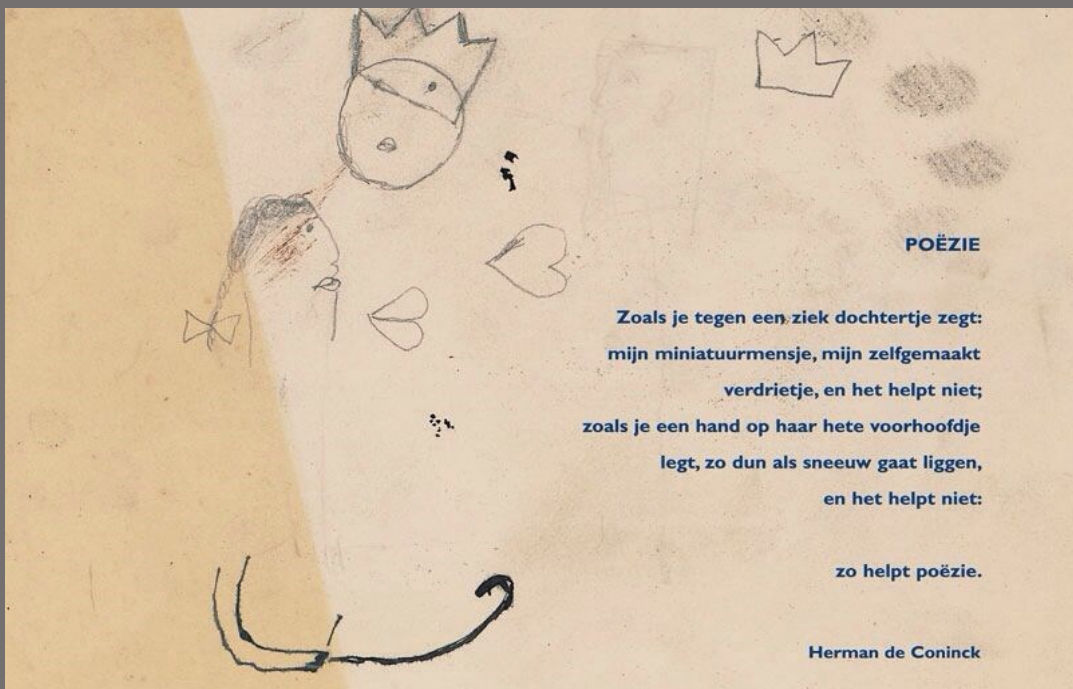 POËZIE
Zoals je tegen een ziek dochtertje zegt:
mijn miniatuurmensje, mijn zelfgemaakt
verdrietje, en het helpt niet;
zoals je een hand op haar hete voorhoofdje
legt, zo dun als sneeuw gaat liggen,
en het helpt niet:
zo helpt poëzie.
Herman de Coninck